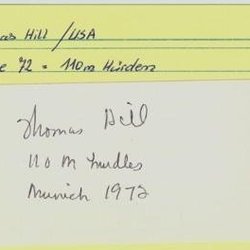 as Hill / USA
e 72 - 110m Hürden
Thomas Hill
110 M hurdles
Munich 1972